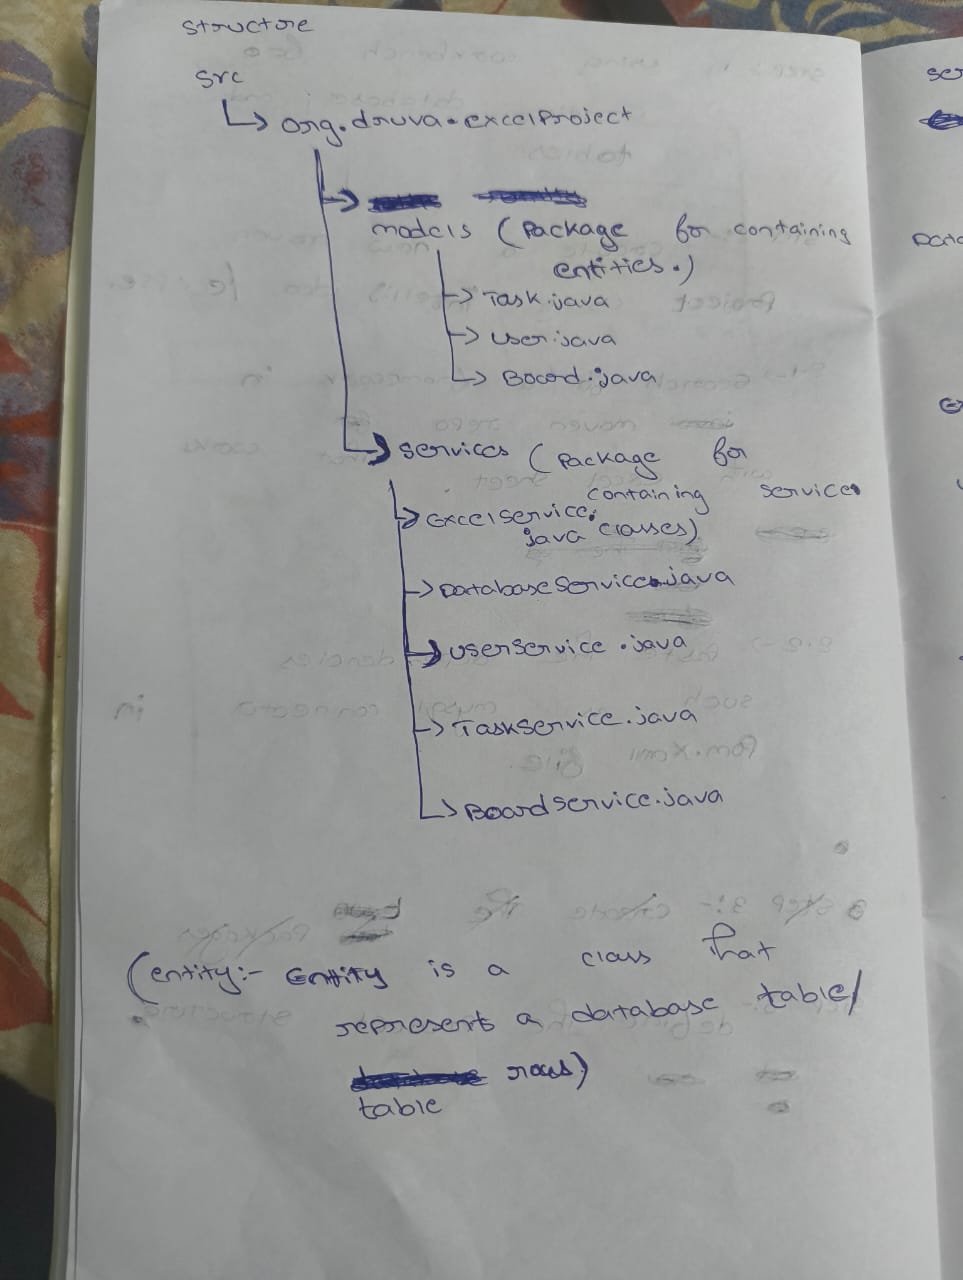 structure
src
org.druva.excelProject
models (Package for containing
entities.)
Task.java
User.java
Board.java
services (Package for
containing service
ExcelService.
java classes)
DatabaseService.java
UserService.java
TaskService.java
BoardService.java
(entity:- Entity is a class that
represent a database table/
rows)
table